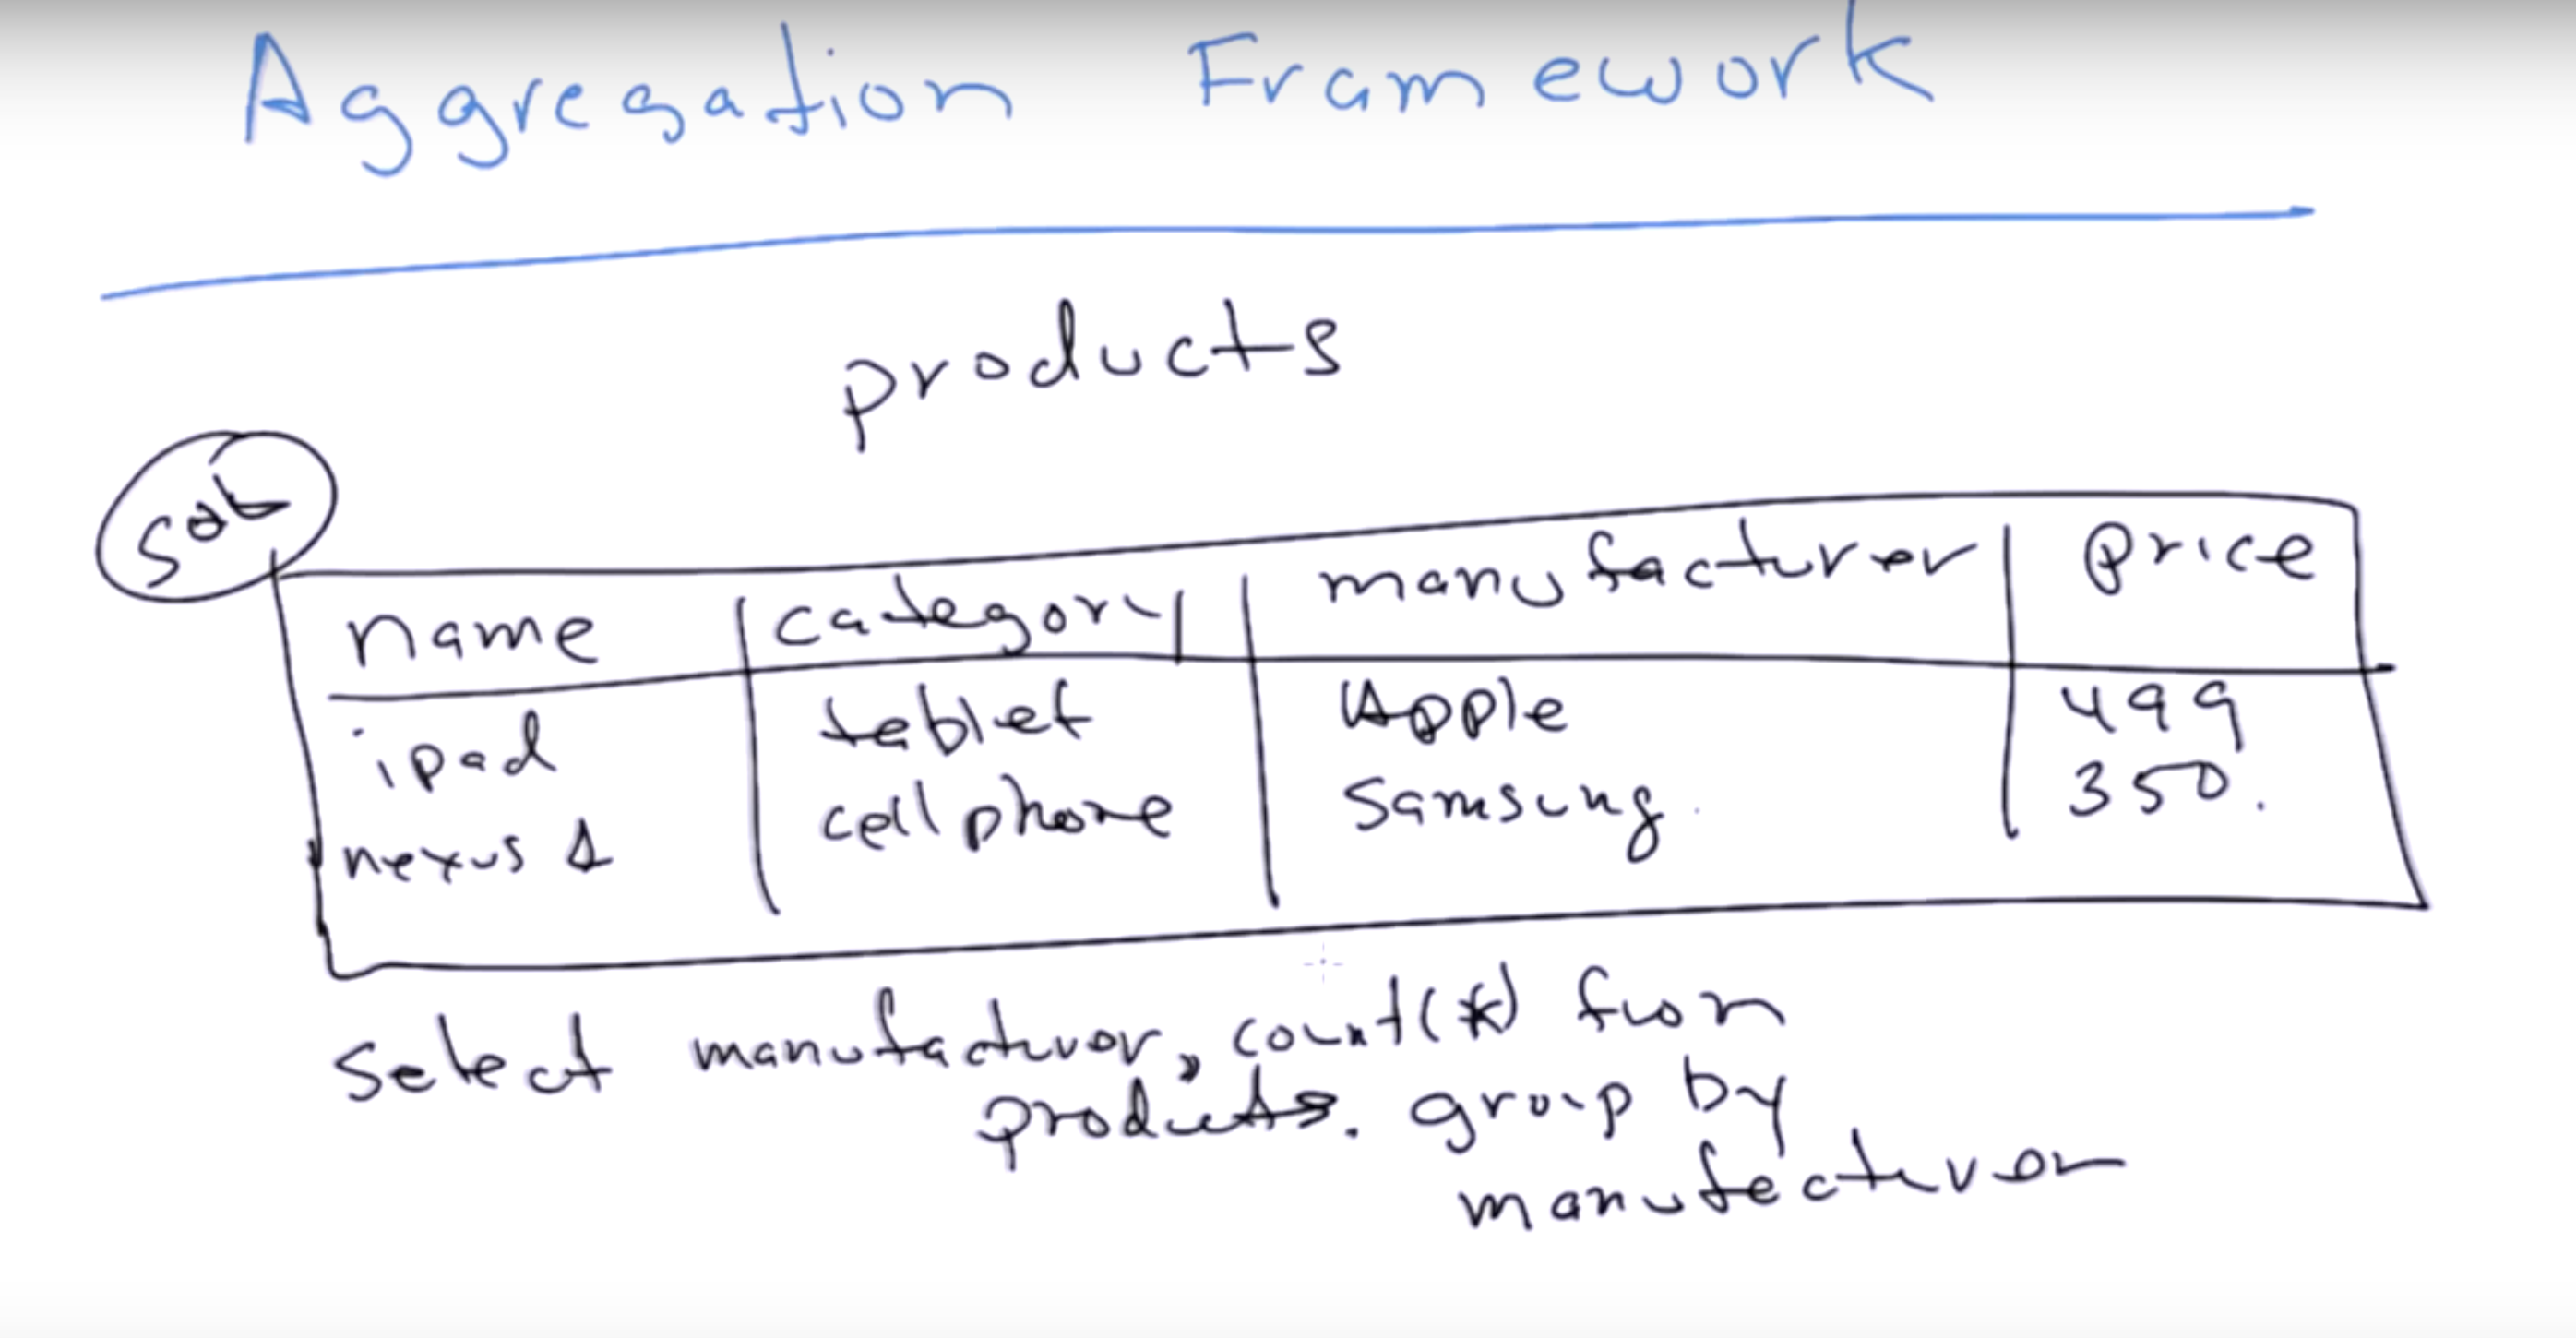 Aggregation Framework
products
sql
name category manufacturer price
ipad tablet Apple 499
nexus s cellphone Samsung. 350.
select manufacturer, count(*) from
products. group by
manufacturer